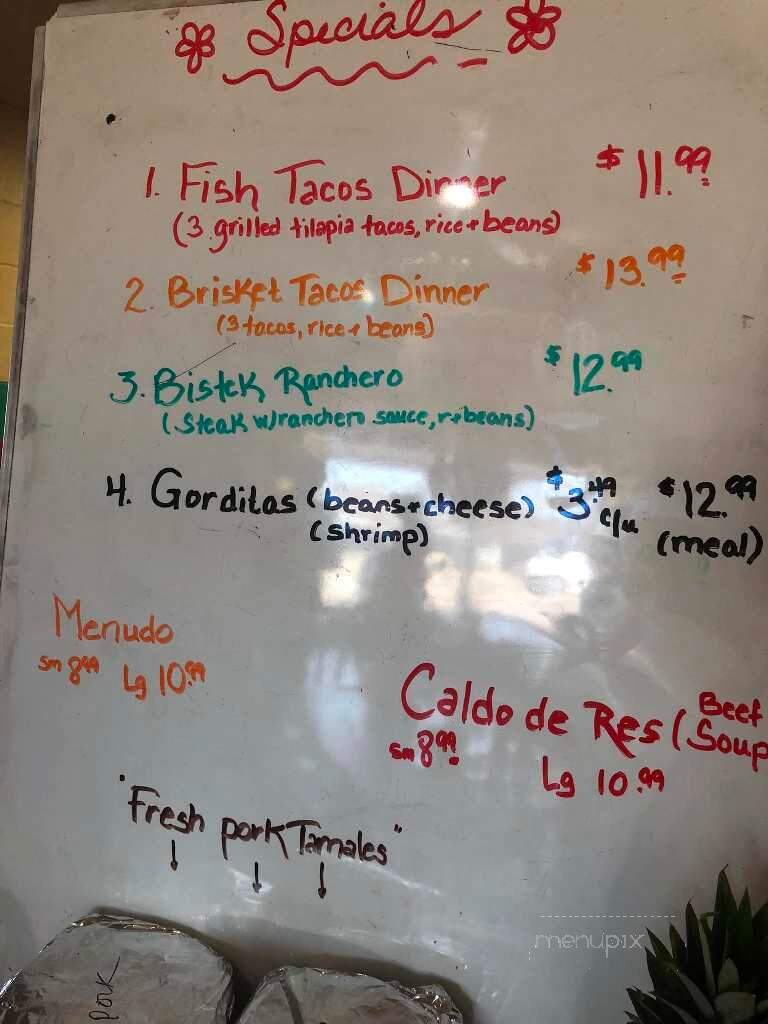 Specials
1. Fish Tacos Dinner $11.99
(3 grilled tilapia tacos, rice + beans)
2. Brisket Tacos Dinner $13.99
(3 tacos, rice + beans)
3. Bistek Ranchero $12.99
(Steak w/ranchero sauce, r+beans)
4. Gorditas (beans+cheese) $3.49 c/u $12.99
(shrimp) (meal)
Menudo
sm 8.99 Lg 10.99
Caldo de Res (Beef Soup
sm 8.99 Lg 10.99
"Fresh pork Tamales"
menupix
pork